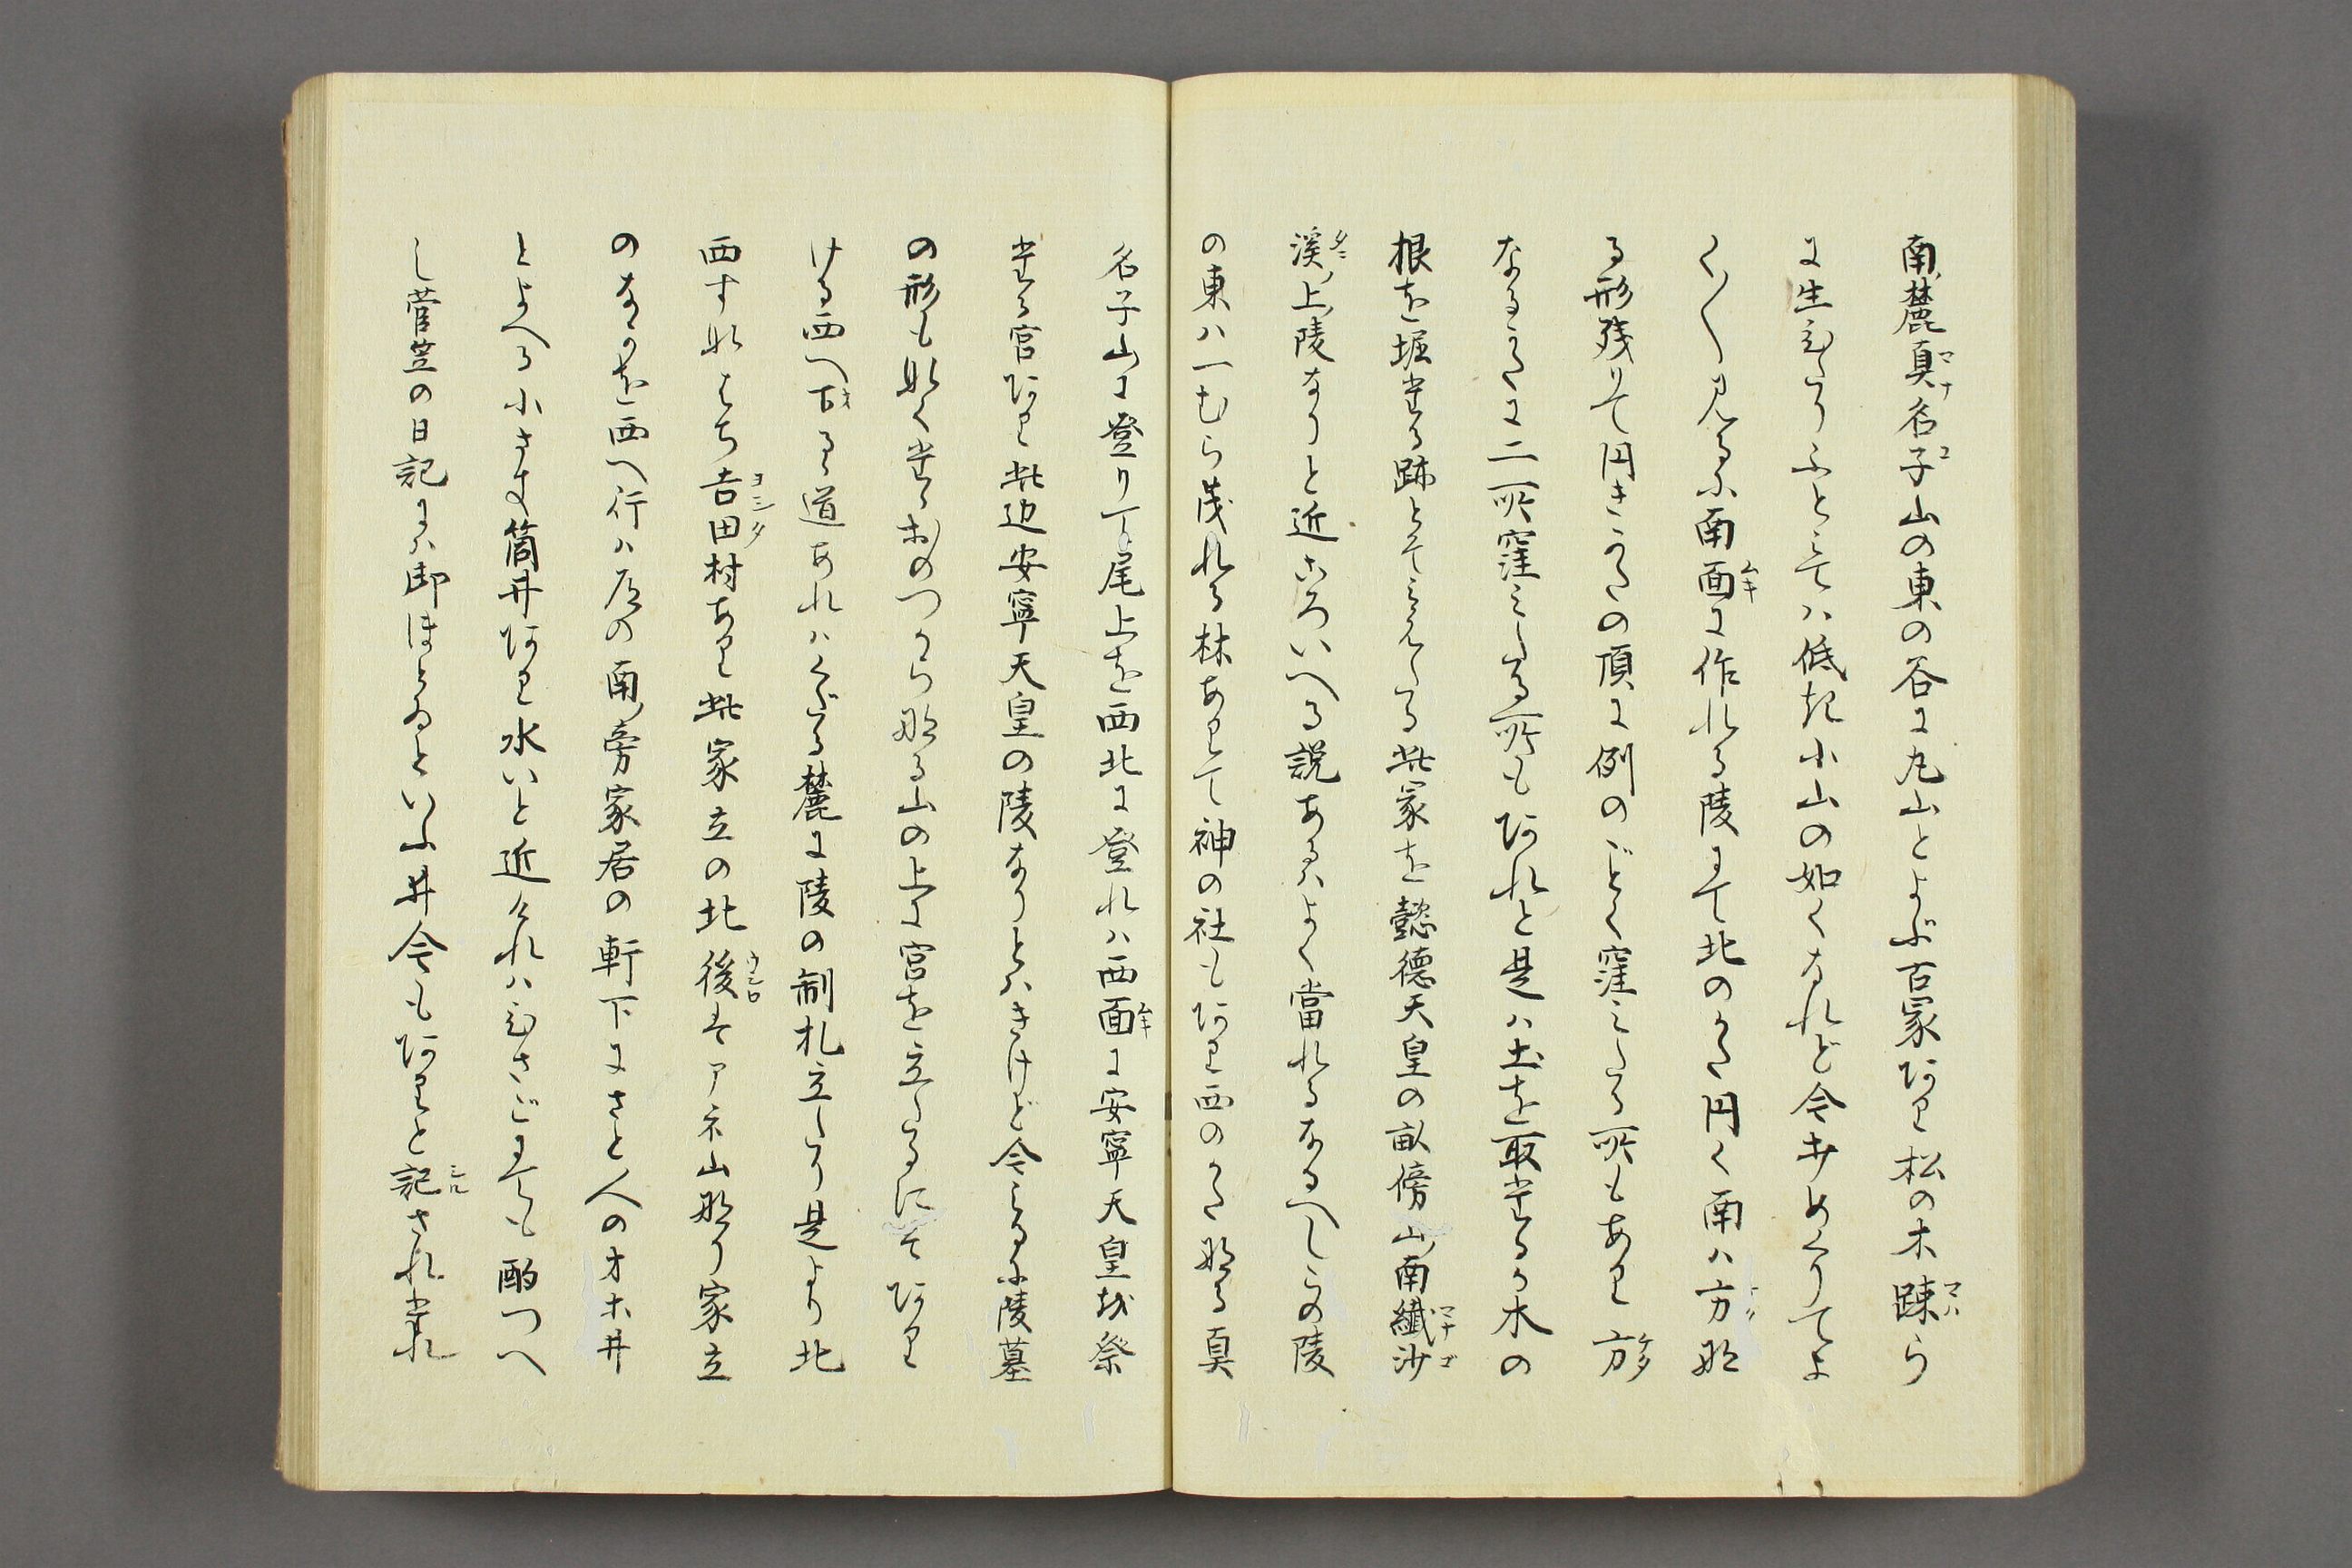 南ノ麓真名子山の東の谷に丸山とよぶ古冢阿り松の木踈ら
に生ひたりふとミてハ低き小山の如くなれど今少めくりてよ
く〳〵見るに南面に作れる陵にて北のかた円く南ハ方な
る形残りて円きかたの頂に例のごとく窪ミたる所もあり方
なるかたに二所窪ミたる所も阿れと是ハ土を取たるか木の
根を堀たる跡とそミえたる此冢を懿徳天皇の畝傍山南繊沙
渓ノ上陵なりと近ころいへる説あるハよく當れるなるへしこの陵
の東ハ一むら茂れる林ありて神の社も阿り西のかたなる真
名子山に登り下尾上を西北に登れハ西面に安寧天皇を祭
たる宮阿り此辺安寧天皇の陵なりとハきけど今ミるに陵墓
の形も無くたゝおのつからなる山の上に宮を立たるにそ阿り
ける西へ下る道あれハくだる麓に陵の制札立たり是より北
西すれはち吉田村あり此家立の北後そアネ山なり家立
のなかを西へ行ハ道の南ノ旁家居の軒下にさと人のオホ井
とよへる小さき筒井阿り水いと近けれハひさごにても酌つへ
し菅笠の日記にハ御ほとゐといふ井今も阿りと記されたれ